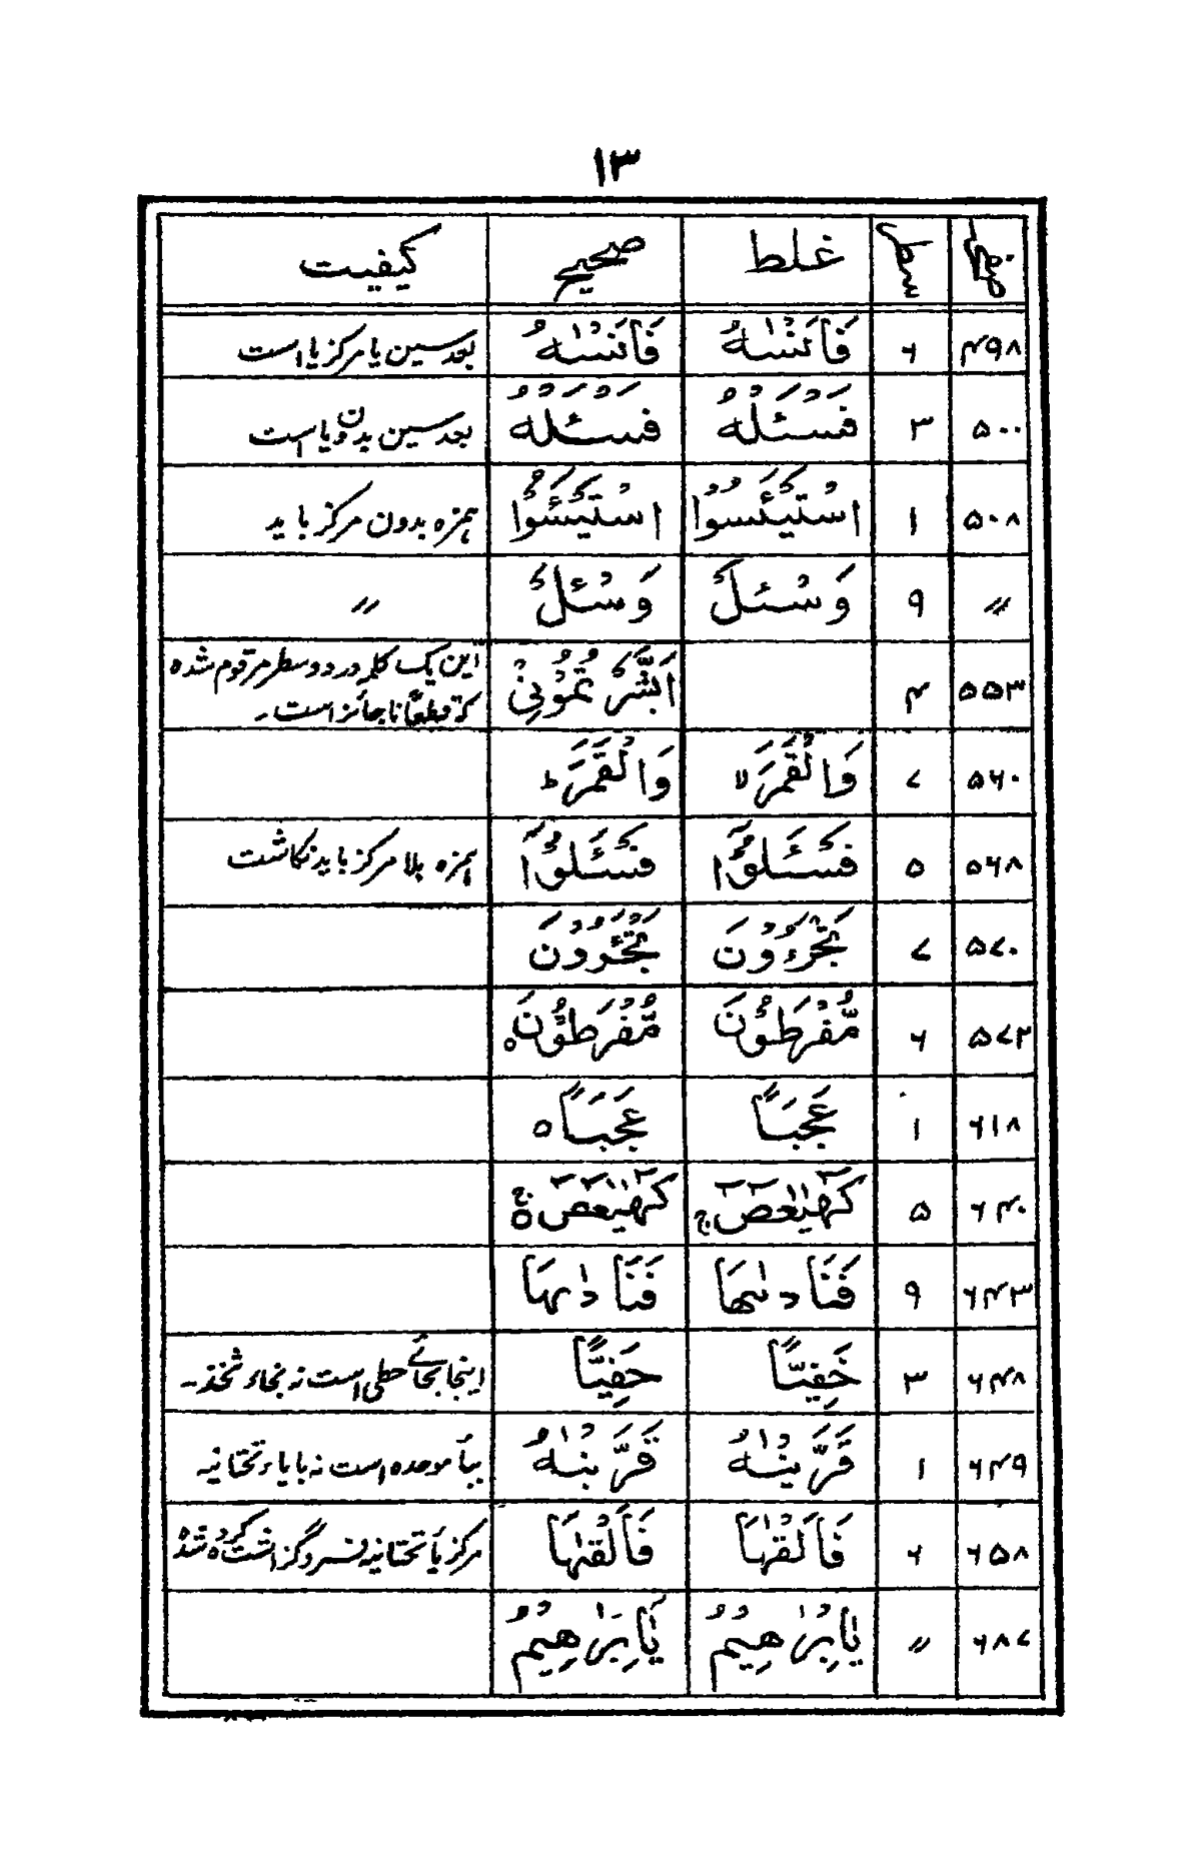 ۱۳
صفحہ سطر غلط صحیح کیفیت
۴۹۸ ۶ فَاَنْسٰىهُ فَاَنْسٰىهُ بعد سین یا مرکز یا است
۵۰۰ ۳ فَسْئَلْهُ فَسْئَلْهُ بعد سین بدون یا است
۵۰۸ ۱ اسْتَيْئَسُوْا اسْتَيْئَسُوْا ہمزہ بدون مرکز باید
〃 ۹ وَسْئَلْ وَسْئَلْ 〃
۵۵۳ ۴ اَبَشَّرْتُمُوْنِيْ این یک کلمہ در دو سطر مرقوم شدہ
کہ قطعًا ناجائز است۔
۵۶۰ ۷ وَالْقَمَرَ ۙ وَالْقَمَرَ ؕ
۵۶۸ ۵ فَسْئَلُوْٓا فَسْئَلُوْٓا ہمزہ بلا مرکز باید نگاشت
۵۷۰ ۷ تَجْـَٔرُوْنَ تَجْـَٔرُوْنَ
۵۷۲ ۶ مُّفْرَطُوْنَ مُّفْرَطُوْنَ ۝
۶۱۸ ۱ عَجَبًا عَجَبًا ۝
۶۴۰ ۵ كٓهٰيٰعٓصٓ ۚ كٓهٰيٰعٓصٓ ۝ۚ
۶۴۳ ۹ فَنَادٰىهَا فَنَادٰىهَا
۶۴۸ ۳ خَفِيًّا حَفِيًّا اینجا بحائے حطی است نہ بخاء ثخذ۔
۶۴۹ ۱ قَرَّيْنٰهُ قَرَّبْنٰهُ بباء موحدہ است نہ بایاء تحتانیہ
۶۵۸ ۶ فَاَلْقٰهَا فَاَلْقٰىهَا مرکز یاء تحتانیہ فروگزاشت کردہ شدہ
۶۸۷ 〃 يٰٓاِبْرٰهِيْمُ يٰٓاِبْرٰهِيْمُ